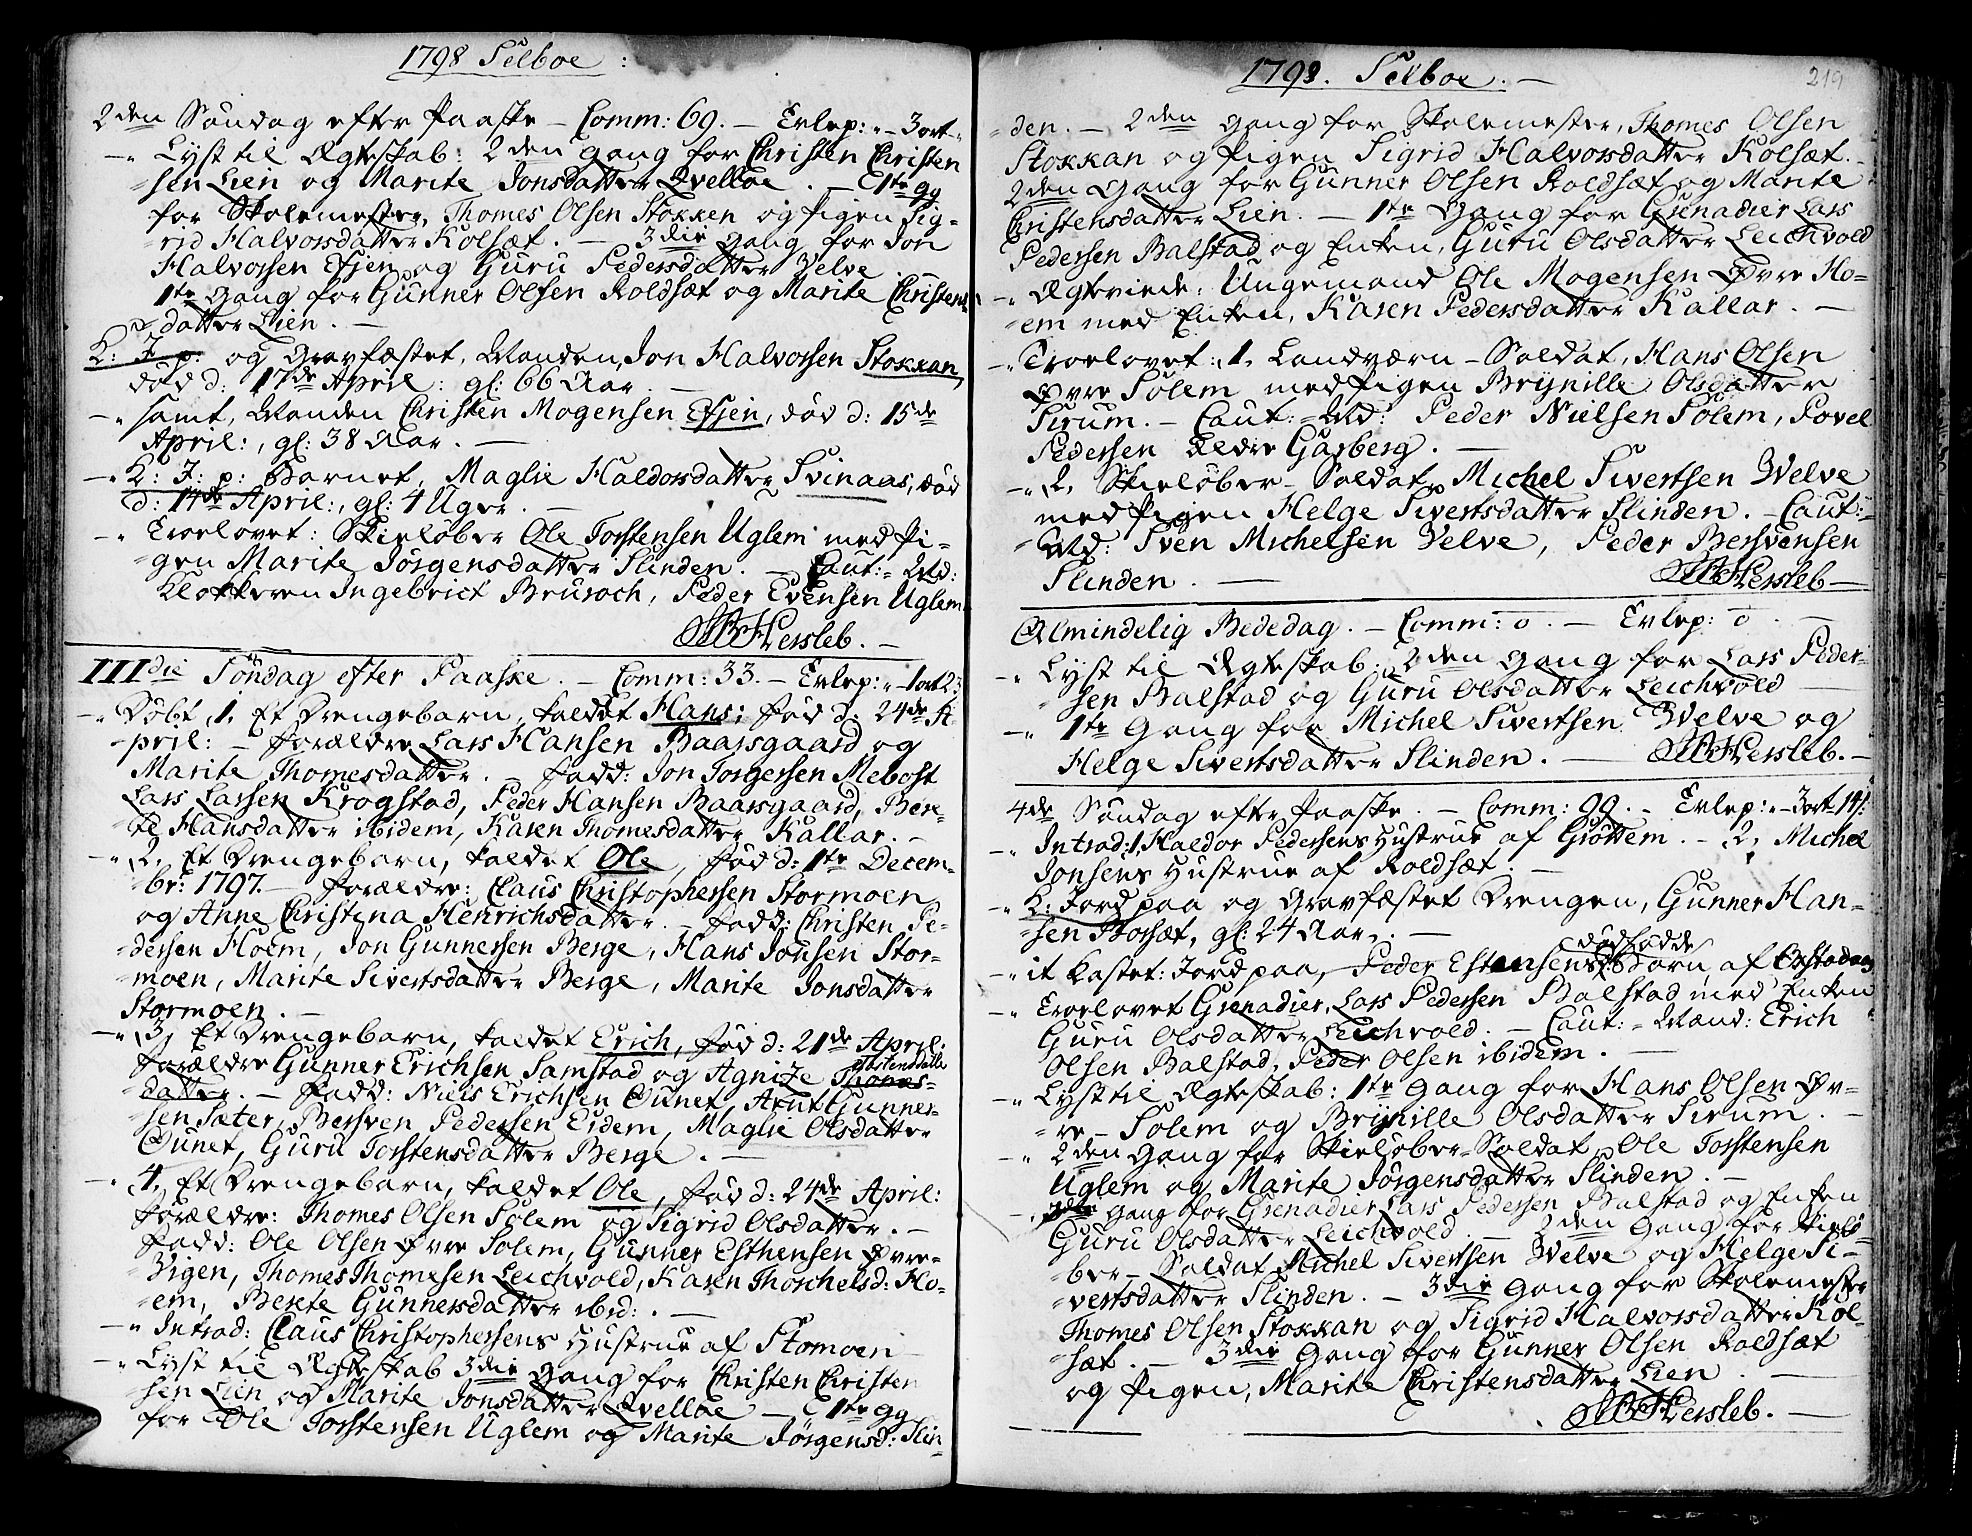 1798 Selboe :
2den Søndag efter Paaske – Comm: 69. – Exlep: „ – 3 ort „
– „ Lyst til Ægteskab: 2den Gang for Christen Christen
sen Lien og Marite Jonsdatter Qvelloe . – 1te gg
for Skolemester, Thomes Olsen Stokken og Pigen Sig-
rid Halvorsdatter Kolsæt. – 3die Gang for Jon
Halvorsen Efjen og Guru Pedersdatter Velve
1te Gang for Gunner Olsen Roldsæt og Marite Christens
datter Lien. –
K: J. p: og Gravfæstet, Manden, Jon Halvorsen Stokkan,
død d: 17de April: gl: 66 Aar. –
– „ samt, Manden Christen Mogensen Efjen, død d: 15de
April: , gl: 38 Aar. –
– „ K: J: p: Barnet, Maglie Haldorsdatter Svinaas, død
d: 14de April:, gl: 4 Uger. –
– „ Troelovet: Skieløber Ole Torstensen Uglem med Pi-
gen Marite Jørgensdatter Slinden. – Caut: Md:
Klokkeren Ingebrict Brusoch, Peder Evensen Uglem
Hersleb. –
IIIdie Søndag efter Paaske. – Comm: 33. – Exlep: „ – 1 ort 23
– „ Døbt 1, Et Drengebarn, kaldet Hans; fød d: 24de A-
pril: – Forældre Lars Hansen Baarsgaard og
Marite Thomesdatter. – Fadd: Jon Jorgersen Mebost
Lars Larsen Krogstad, Peder Hansen Baarsgaard, Bere-
te Hansdatter ibidem, Karen Thomesdatter Kallar. –
– „ 2, Et Drengebarn, kaldet Ole, fød d: 1te Decem-
br: 1797. – Forældre: Claus Christophersen Stormoen
og Anne Christina Henrichsdatter. – Fadd: Christen Pe-
dersen Hoem, Jon Gunnersen Berge, Hans Jonsen Stor-
moen, Marite Sivertsdatter Berge, Marite Jonsdatter
Stormoen. –
– „ 3, Et Drengebarn, kaldet Erich, fød d: 21de April:
Forældre Gunner Erichsen Samstad og Agnite Thomes-
datter. – Fadd: Niels Erichsen Ounet, Arnt Gunner-
sen Sater, Bersven Pedersen Eidem, Maglie Olsdatter
Ounet, Guru Torstensdatter Berge. –
– „ 4, Et Drengebarn, kaldet Ole, fød d: 24de April:
Forældre: Thomes Olsen Solem og Sigrid Olsdatter. –
Fadd: Ole Olsen Øvre Solem, Gunner Esthensen Øvre-
Vigen, Thomes Thomesen Leichvold, Karen Thorchelsd: Ho-
em, Berete Gunnersdatter ibid: . –
– „ Introd: Claus Christophersens Hustrue af Stomoen
– „ Lyst til Ægteskab 3die Gang for Christen Christen
sen Lien og Marite Jonsdatter Qvelloe – 1te gg
for Ole Torstensen Uglem og Marite Jørgensd: Slin-
1798. Selboe. –
219
den. – 2den Gang for Skolemester, Thomes Olsen
Stokkan og Pigen Sigrid Halvorsdatter Kolsæt. –
2den Gang for Gunner Olsen Roldsæt og Marite
Christensdatter Lien. – 1te Gang for Grenadier Lars
Pedersen Balstad og Enken, Guru Olsdatter Leichvold
– „ Ægteviede: Ungemand Ole Mogensen Øvre Ho-
em med Enken, Karen Pedersdatter Kallar. –
– „ Troelovet: 1, Landværn – Soldat, Hans Olsen
Øvre Solem med Pigen Brynille Olsdatter
Sirum. – Caut: Md: Peder Nielsen Solem, Povel
Pedersen Ældre Garberg. –
– „ 2, Skieløber – Soldat, Michel Sivertsen Velve
med Pigen Helge Sivertsdatter Slinden. – Caut:
Md: Sven Michelsen Velve, Peder Bersvensen
Slinden. – Hersleb –
Almindelig Bededag. – Comm: o. – Exlep: o . –
– „ Lyst til Ægteskab: 2den Gang for Lars Peder-
sen Balstad og Guru Olsdatter Leichvold –
– „ 1te Gang for Michel Sivertsen Velve og
Helge Sivertsdatter Slinden. – Hersleb. –
4de Søndag efter Paaske. – Comm: 99. – Exlep: „ – 3 ort 14/.
– „ Introd: 1, Haldor Pedersens Hustrue af Grøttem. – 2, Michel
Jonsens Hustrue af Roldsæt. –
– „ K: Jord paa og Gravfæstet Drengen, Gunner Han-
sen Borsæt, gl: 24 Aar. –
dødfødde
– „ it Kastet: Jord paa, Peder Estensens Barn af
– „ Troelovet Grenadier, Lars Pedersen Balstad med Enken
Guru Olsdatter Leichvold. – Caut: Mænd: Erich
Olsen Balstad, Peder Olsen ibidem. –
– „ Lyst til Ægteskab: 1te Gang for Hans Olsen Øv-
re – Solem og Brynille Olsdatter Sirum. –
– „ 2den Gang for Skieløber – Soldat, Ole Torstensen
Uglem og Marite Jørgensdatter Slinden. –
– „ Gang for Grenadier Lars Pedersen Balstad og Enken
Guru Olsdatter Leichvold. – 2den Gang for Skielø-
ber – Soldat Michel Sivertsen Velve og Helge Si-
vertsdatter Slinden. – 3die Gang for Skolemester
Thomes Olsen Stokkan og Sigrid Halvorsdatter Kol-
sæt. – 3die Gang for Gunner Olsen Roldsæt
og Pigen, Marite Christensdatter Lien. –
Hersleb. –